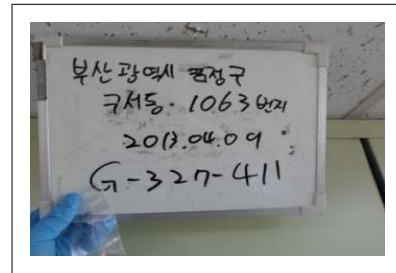 부산광역시 금정구
구서동. 1063번지
2013.04.09
G-327-411